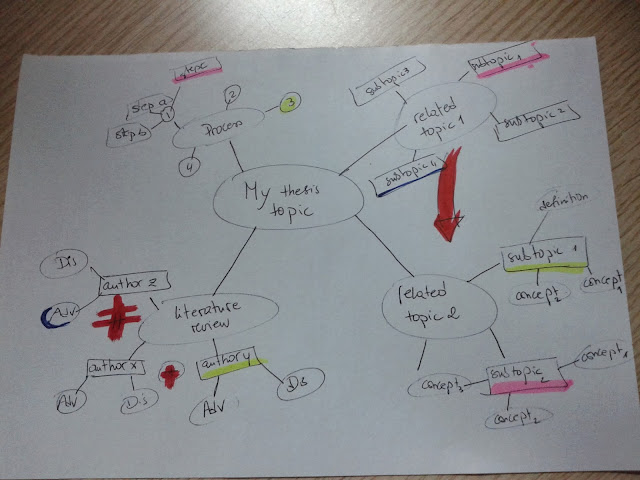 step c
step a
step b
1
2
3
4
Process
subtopic 3
subtopic 1
related
topic 1
subtopic 2
subtopic 4
My thesis
topic
definition
subtopic 1
concept 2
concept 1
related
topic 2
concept 1
subtopic 2
concept 3
concept 2
Dis
author z
Adv
literature
review
author x
author y
Adv
Dis
Adv
Dis